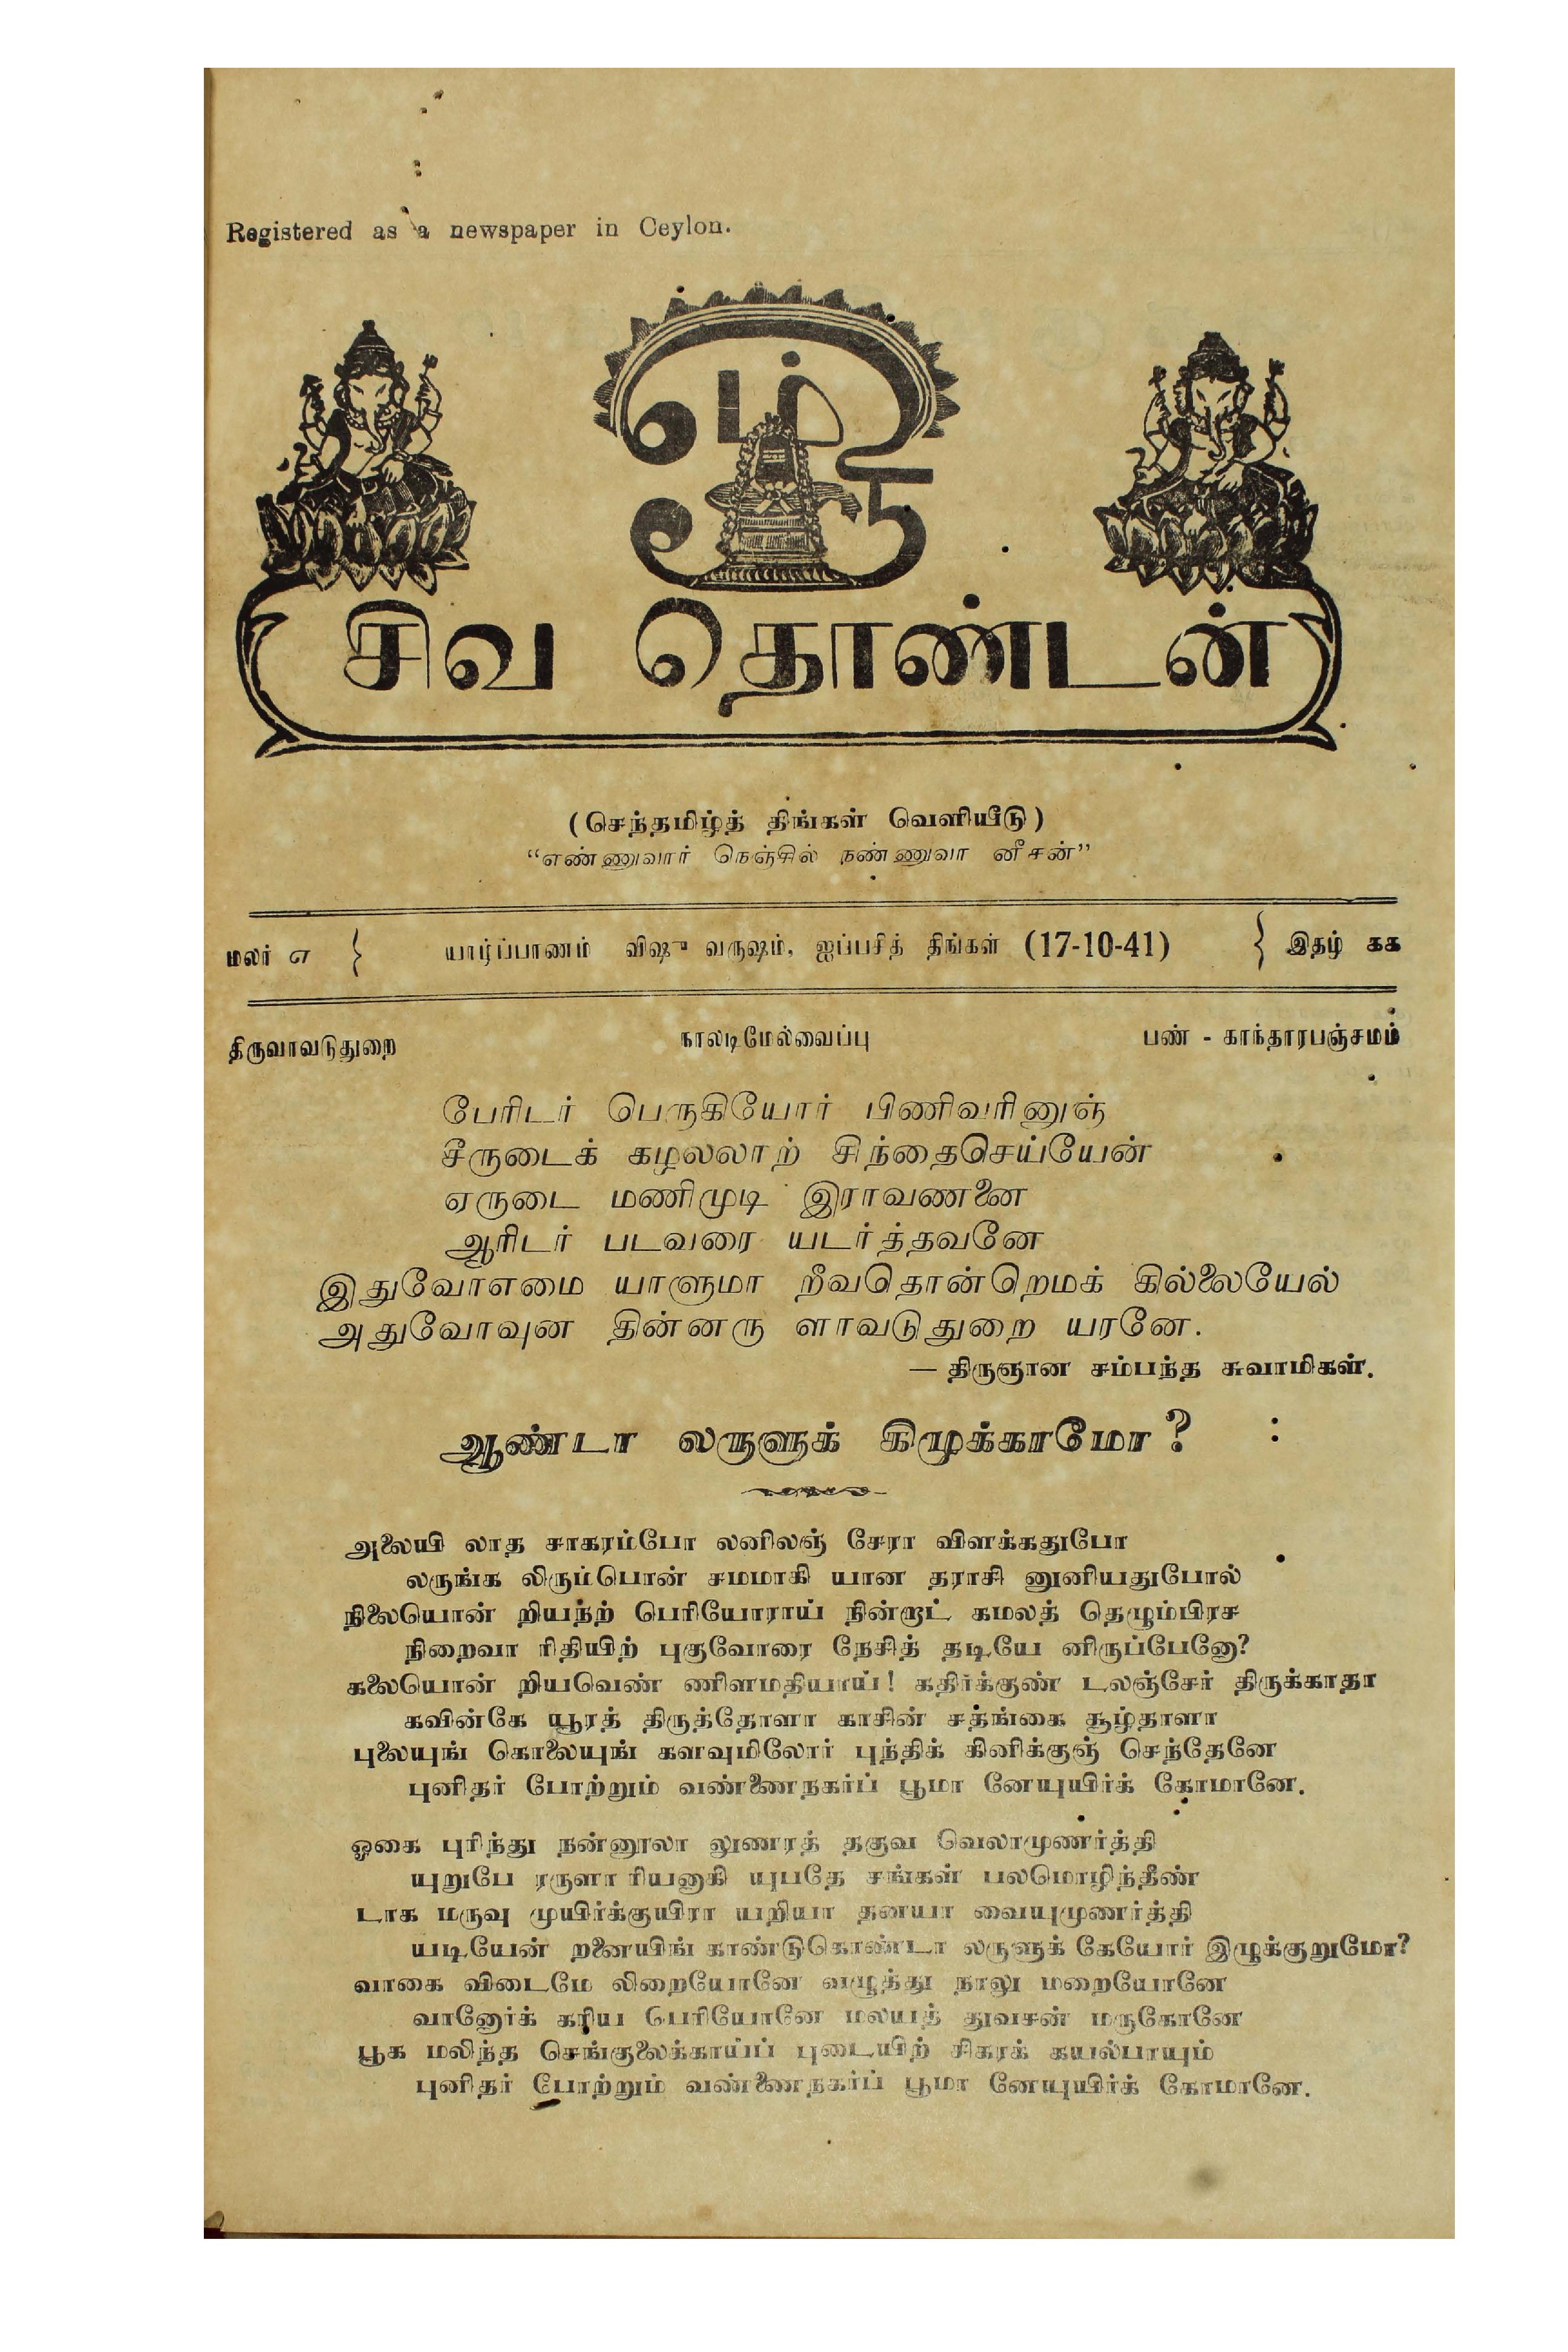 Registered as a newspaper in Ceylon.
ஓம்
சிவ தொண்டன்
(செந்தமிழ்த் திங்கள் வெளியீடு)
“எண்ணுவார் நெஞ்சில் நண்ணுவா னீசன்”
மலர் எ } யாழ்ப்பாணம் விஷு வருஷம், ஐப்பசித் திங்கள் (17-10-41) } இதழ் கக
திருவாவடுதுறை நாலடிமேல்வைப்பு பண் - காந்தாரபஞ்சமம்
பேரிடர் பெருகியோர் பிணிவரினுஞ்
சீருடைக் கழலலாற் சிந்தைசெய்யேன்
ஏருடை மணிமுடி இராவணனை
ஆரிடர் படவரை யடர்த்தவனே
இதுவோஎமை யாளுமா றீவதொன்றெமக் கில்லையேல்
அதுவோவுன தின்னரு ளாவடுதுறை யரனே.
— திருஞான சம்பந்த சுவாமிகள்.
ஆண்டா லருளுக் கிழுக்காமோ?
அலையி லாத சாகரம்போ லனிலஞ் சேரா விளக்கதுபோ
லருங்க லிருப்பொன் சமமாகி யான தராசி னுனியதுபோல்
நிலையொன் றியநற் பெரியோராய் நின்றாட் கமலத் தெழும்பிரச
நிறைவா ரிதியிற் புகுவோரை நேசித் தடியே னிருப்பேனோ?
கலையொன் றியவெண் ணிளமதியாய்! கதிர்க்குண் டலஞ்சேர் திருக்காதா
கவின்கே யூரத் திருத்தோளா காசின் சத்ங்கை சூழ்தாளா
புலையுங் கொலையுங் களவுமிலோர் புந்திக் கினிக்குஞ் செந்தேனே
புனிதர் போற்றும் வண்ணைநகர்ப் பூமா னேயுயிர்க் கோமானே.
ஓகை புரிந்து நன்னூலா லுணரத் தகுவ வெலாமுணர்த்தி
யுறுபே ரருளா ரியனாகி யுபதே சங்கள் பலமொழிந்தீண்
டாக மருவு முயிர்க்குயிரா யறியா தனயா வையுமுணர்த்தி
யடியேன் றனையிங் காண்டுகொண்டா லருளுக் கேயோர் இழுக்குறுமோ?
வாகை விடைமே லிறையோனே வழுத்து நாலு மறையோனே
வானோர்க் கரிய பெரியோனே மலயத் துவசன் மருகோனே
பூக மலிந்த செங்குலைக்காய்ப் புடையிற் சிகரக் கயல்பாயும்
புனிதர் போற்றும் வண்ணைநகர்ப் பூமா னேயுயிர்க் கோமானே.